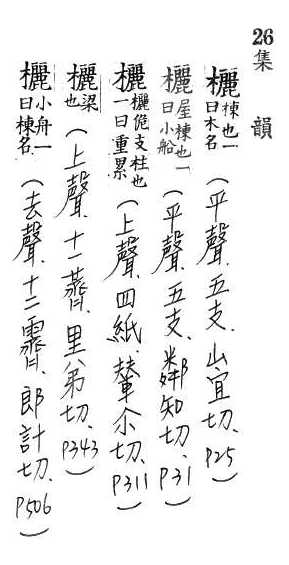 26集韻
欐棟也一曰木名(平聲、五支、山宜切、P25)
欐屋棟也一曰小船(平聲、五支、鄰知切、P31)
欐欐佹支柱也一曰重累(上聲、四紙、輦尒切、P311)
欐梁也(上聲、十一薺、里弟切、P343)
欐小舟一曰棟名(去聲、十二霽、郎計切、P506)